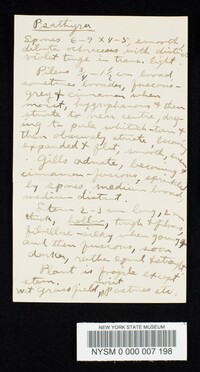 Psathyra
Spores 6-9 X 4-5, smooth
dilute ochraceous with distinct
violet tinge in trans. light.
Pileus 3/4-1 1/2 cm broad,
sometimes broader, fuscous-
grey & when
moist, hygrophanous & then
striate to near centre, dry-
ing to pale whitish-tan &
then obscurely striate, becoming
expanded & flat, smooth,
Gills adnate, becoming
cinnamon-fuscous, sprinkled
by spores, medium broad,
medium distinct.
Stem 2-3 cm long, 2 m
thick, hollow, tough &
fibrillose-silky when young
and then fuscous, soon
darker, rather equal & straight
Plant is fragile except
stem.
wet grass field, pastures etc.
NEW YORK STATE MUSEUM
NYSM 0 000 007 198